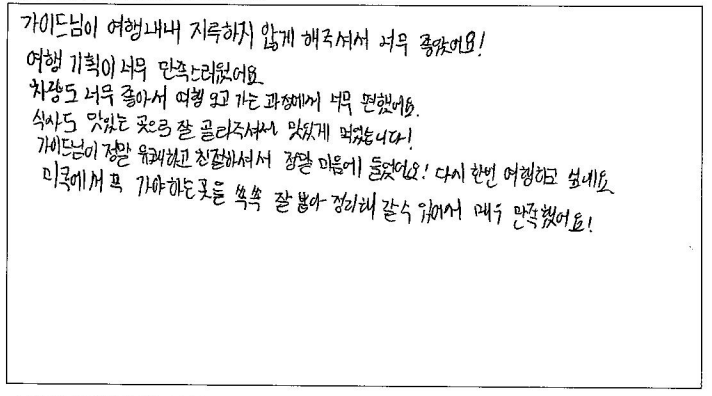 가이드님이 여행내내 지루하지 않게 해주셔서 너무 좋았어요!
여행 기획이 너무 만족스러웠어요
차량도 너무 좋아서 여행 오고 가는 과정에서 너무 편했어요.
식사도 맛있는 곳으로 잘 골라주셔서 맛있게 먹었습니다!
가이드님이 정말 유쾌하고 친절하셔서 정말 마음에 들었어요! 다시 한번 여행하고 싶네요
미국에서 꼭 가야하는 곳을 쏙쏙 잘 뽑아 정리해 갈수 있어서 매우 만족했어요!